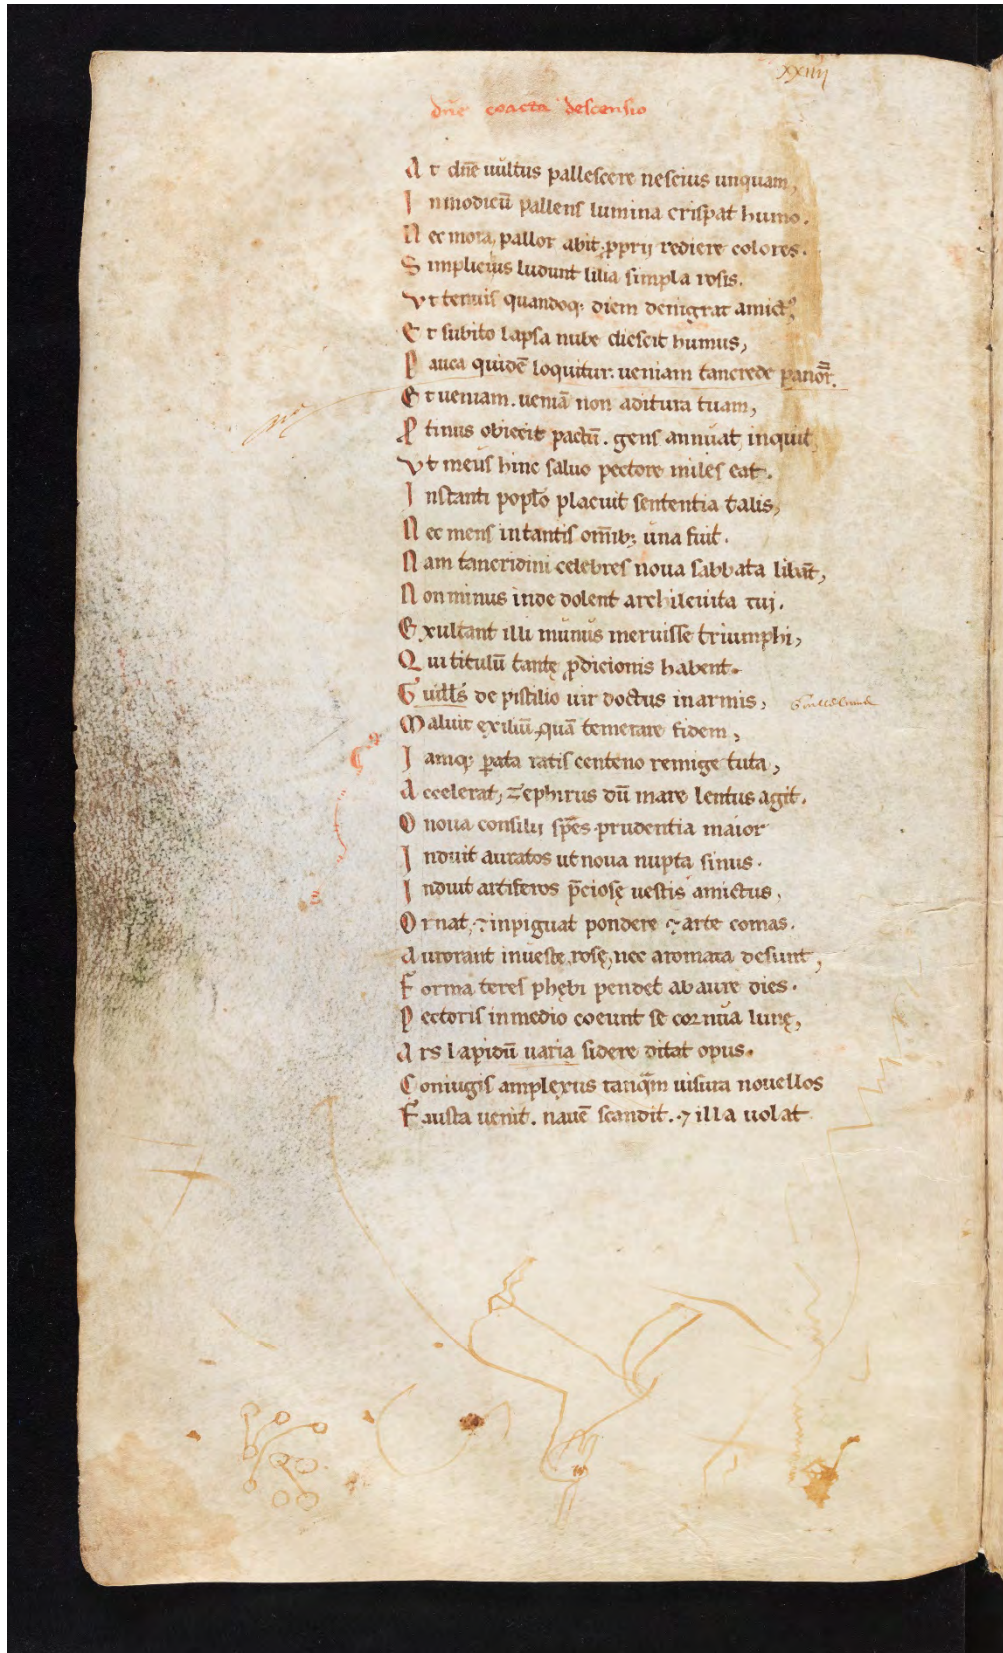 xxiiij
dn̄e coacta descensio
At dn̄e uultus pallescere nescius unquam,
Inmodicū pallens lumina crispat humo.
Nec mora, pallor abit, ꝓprij rediere colores.
Simplicius ludunt lilia simpla rosis.
Vt tenuis quandoq; diem denigrat amictꝰ,
Et subito lapsa nube diescit humus,
Pauca quidē loquitur. ueniam tancrede panor̄.
Et ueniam. ueniā non aditura tuam,
Ꝓtinus obiecit pactū. gens annuat, inquit,
Vt meus hinc saluo pectore miles eat.
Instanti poplo placuit sententia talis,
Nec mens in tantis om̄ib; una fuit.
Nam tancridini celebres noua sabbata libāt,
Non minus inde dolent archileuita tui.
Exultant illi munus meruisse triumphi,
Qui titulū tantę ꝓdicionis habent.
Guills̄ de pistilio uir doctus in armis,
Maluit exiliū, quā temerare fidem,
Iamq; ꝑata ratis centeno remige tuta,
Accelerat, zephirus dū mare lentus agit.
O noua consilij sp̄es. prudentia maior
Induit auratos ut noua nupta sinus.
Induit artiferos p̄ciosę uestis amictus,
Ornat, ⁊ inpiguat pondere ⁊ arte comas.
Aurorant in ueste rosę, nec aromata desunt,
Forma teres phębi pendet ab aure dies.
Pectoris in medio coeunt se cornua lunę,
Ars lapidū uaria sidere ditat opus.
Coniugis amplexus tanq̄m uisura nouellos
Fausta uenit. nauē scandit. ⁊ illa uolat